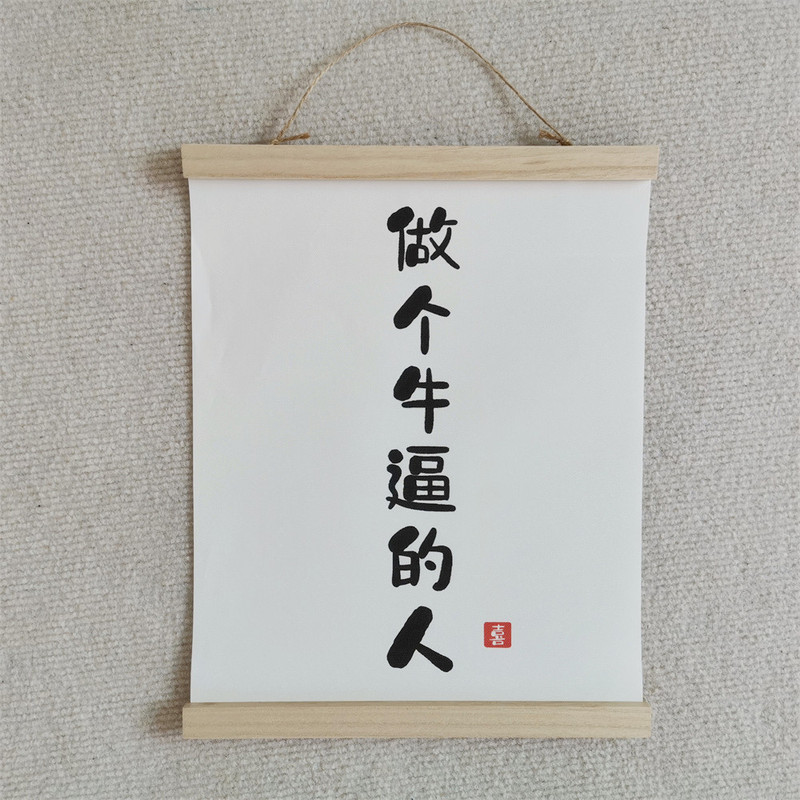 做个牛逼的人
喜